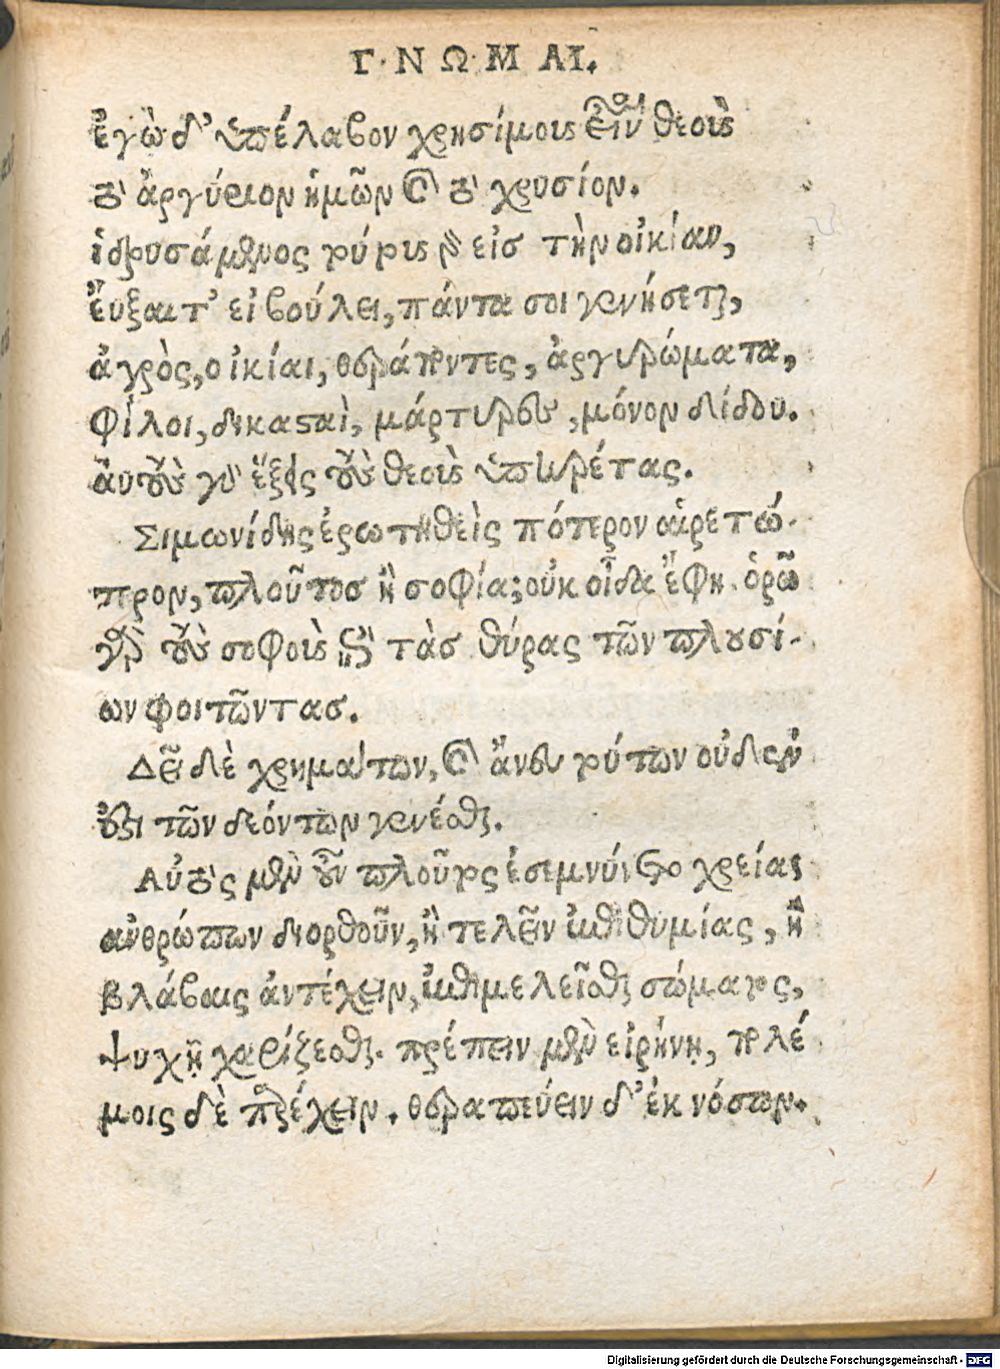 ΓΝΩΜΑΙ.
ἐγὼ δ' ὑπέλαβον χρησίμους εἶναι θεοὺς
τὸ ἀργύριον ἡμῶν καὶ τὸ χρυσίον.
ἱδρυσάμενος τούτους γὰρ εἰσ τὴν οἰκίαν,
εὖξαι τ' εἰ βούλει, πάντα σοι γενήσεται,
ἀγρὸς, οἰκίαι, θεράποντες, ἀργυρώματα,
φίλοι, δικαςαὶ, μάρτυρες, μόνον δίδου.
αὐτοὺς γὰρ ἕξεις τοὺς θεοὺς ὑπηρέτας.
Σιμωνίδης ἐρωτηθεὶς πότερον αἱρετώ-
τερον, πλοῦτος ἢ σοφία; οὐκ οἶδα ἔφη. ὁρῶ
γὰρ τοὺς σοφοὺς ἐπὶ τὰσ θύρας τῶν πλουσί-
ων φοιτῶντασ.
Δεῖ δὲ χρημάτων, καὶ ἄνευ τούτων οὐδὲν
ἔςι τῶν δεόντων γενέσθαι.
Αὐτὸς μὲν οὖν πλοῦτος ἐσεμνύνετο χρείας
ἀνθρώπων διορθοῦν, ἢ τελεῖν ἐπιθυμίας, ἢ
βλάβαις ἀντέχειν, ἐπιμελεῖσθαι σώματος,
ψυχῇ χαρίζεσθαι. πρέπειν μὲν εἰρήνῃ, πολέ
μοις δὲ παρέχειν. θεραπεύειν δ' ἐκ νόσων.
Digitalisierung gefördert durch die Deutsche Forschungsgemeinschaft - DFG